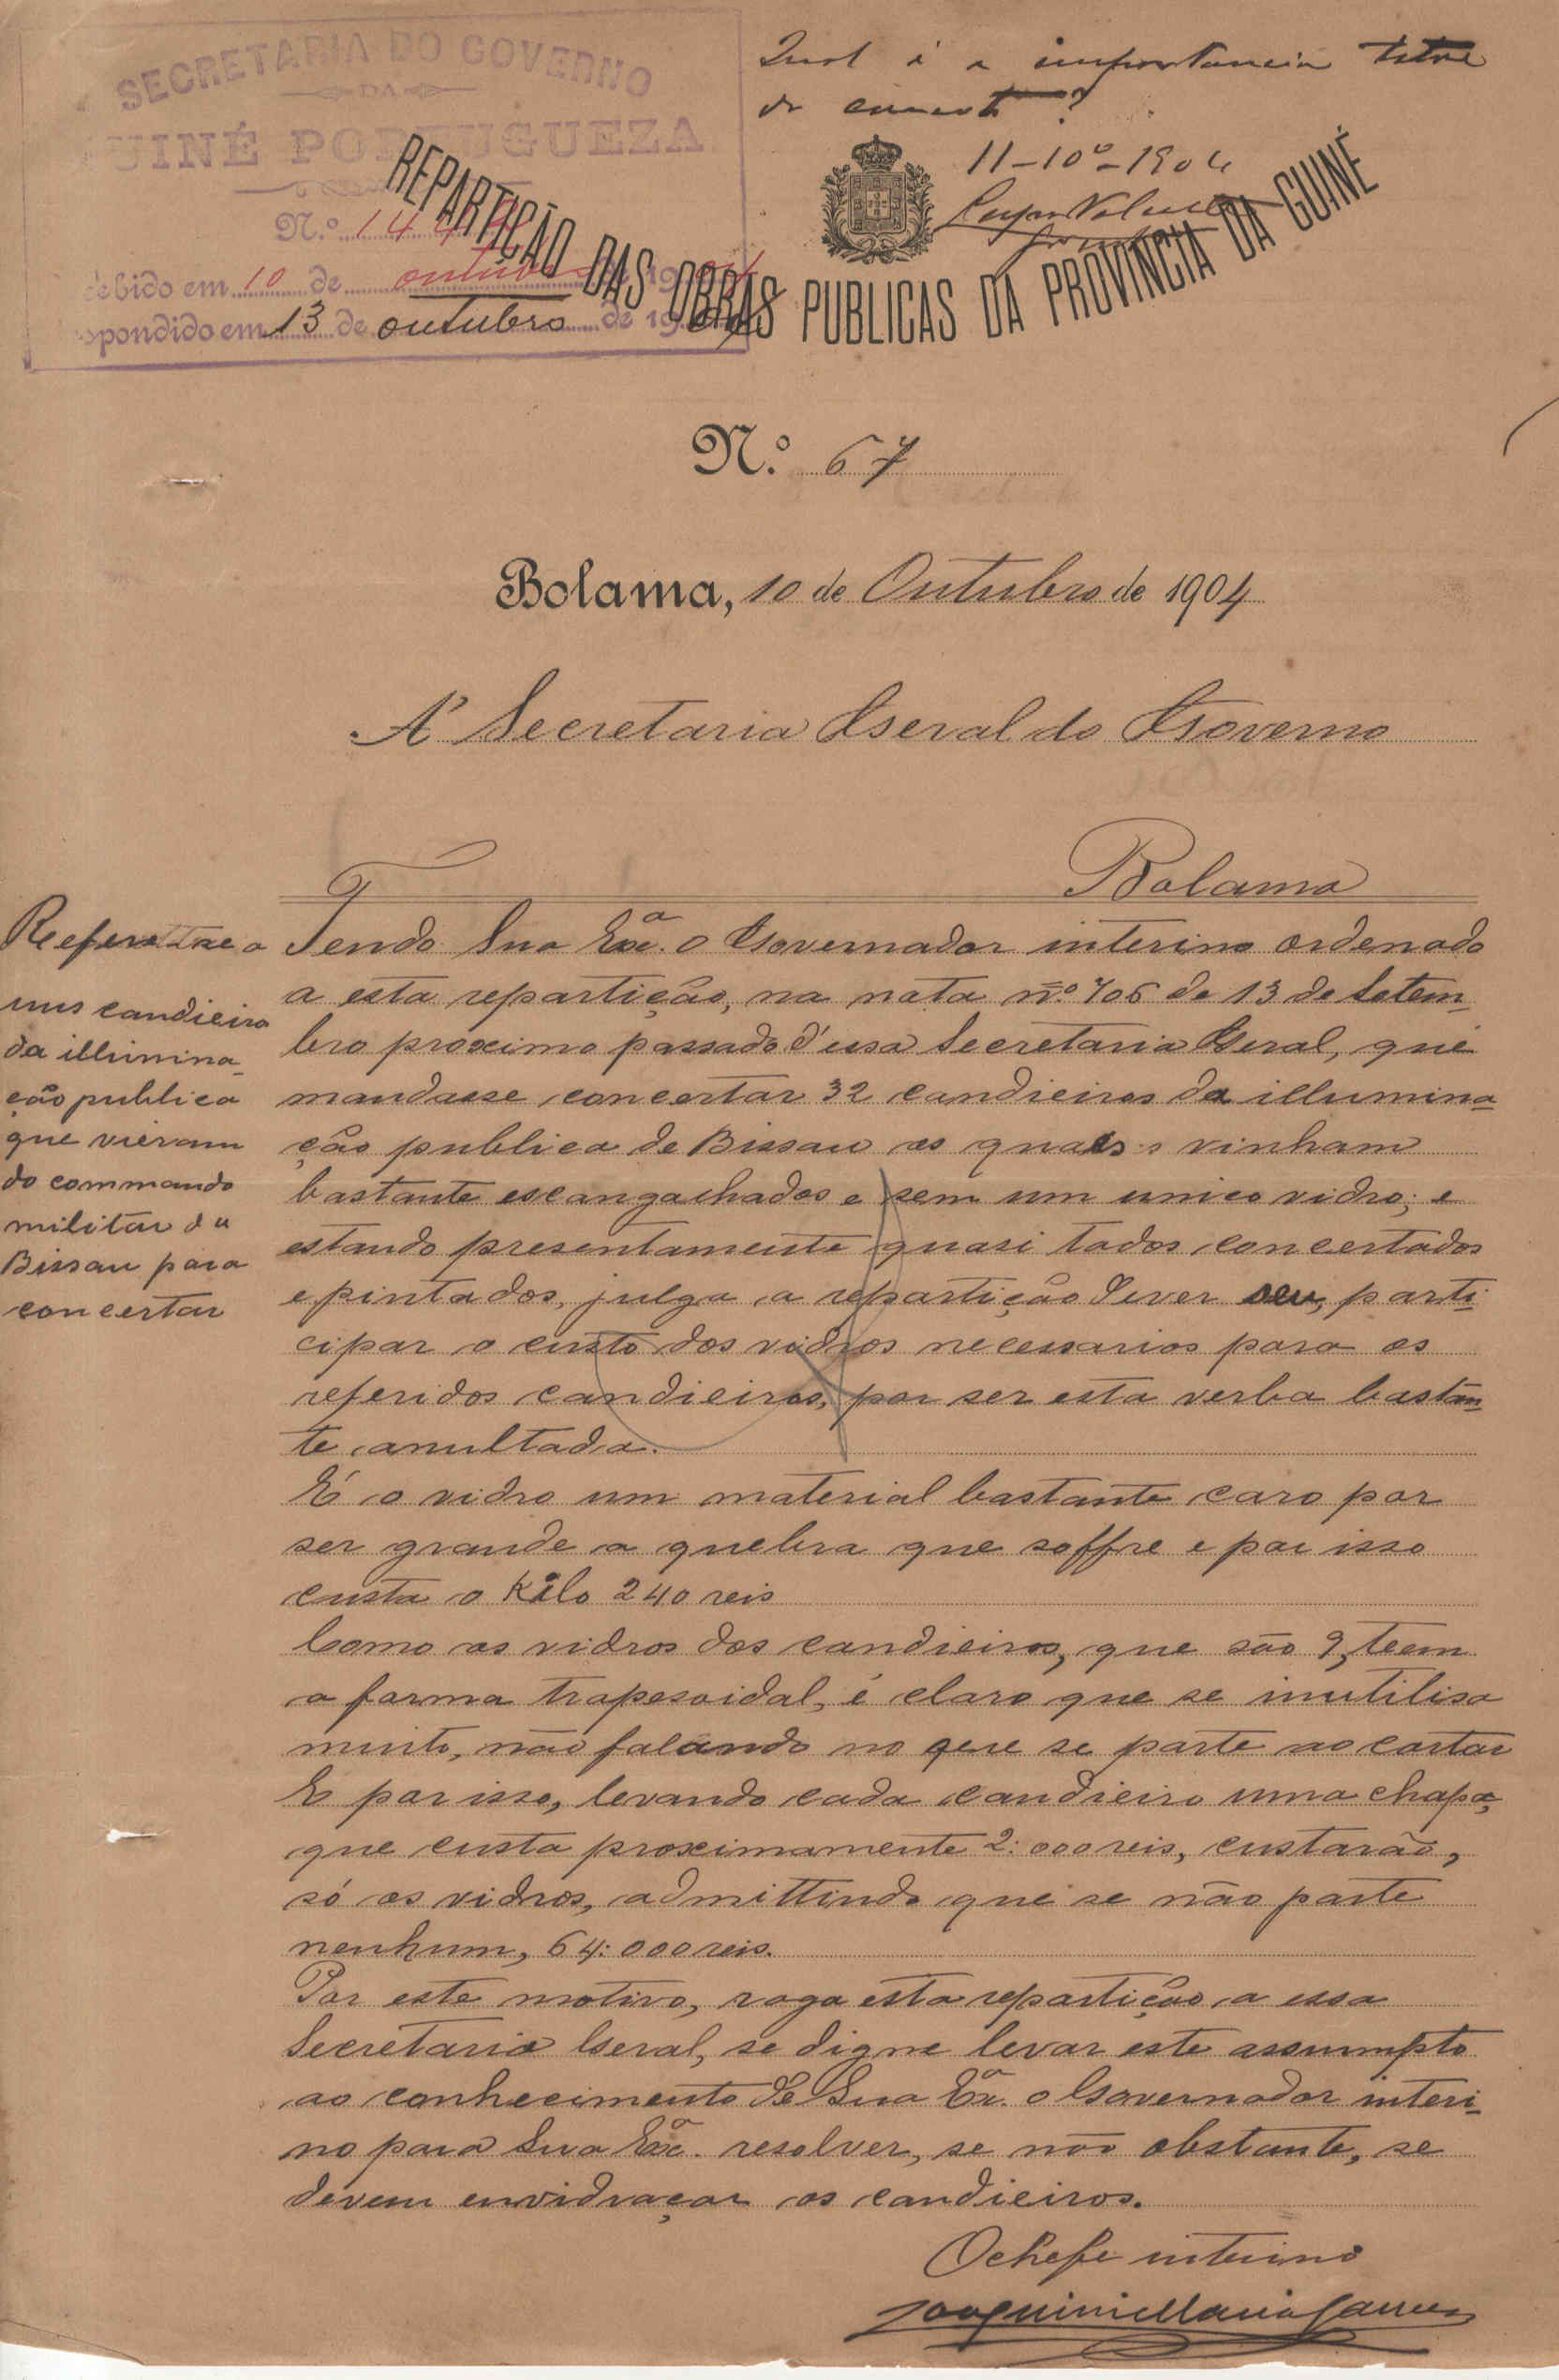 SECRETARIA DO GOVERNO
DA
GUINÉ PORTUGUEZA
N.º 144
ebido em 10 de outubro de 1904
spondido em 13 de outubro de 1904
Qual é a importancia total
do concerto?
11-10º-1904
REPARTIÇÃO DAS OBRAS PUBLICAS DA PROVINCIA DA GUINÉ
N.º 67
Bolama, 10 de Outubro de 1904
A' Secretaria Geral do Governo
Bolama
Refere-se a
uns candieiros
da illumina-
ção publica
que vieram
do commando
militar de
Bissau para
concertar
Tendo Sua Exc.ª o Governador interino ordenado
a esta repartição, na nota n.º 706 de 13 de Setem-
bro proximo passado d'essa Secretaria Geral, que
mandasse concertar 32 candieiros da illumina-
ção publica de Bissau os quaes vinham
bastante escangachados e sem um unico vidro; e
estando presentemente quasi todos concertados
e pintados, julga a repartição dever seu, parti-
cipar o custo dos vidros necessarios para os
referidos candieiros, por ser esta verba bastan-
te avultada.
É o vidro um material bastante caro por
ser grande a quebra que soffre e por isso
custa o kilo 240 reis
Como os vidros dos candieiros, que são 9, teem
a forma trapesoidal, é claro que se inutilisa
muito, não falando no que se parte ao cortar
E por isso, levando cada candieiro uma chapa,
que custa proximamente 2:000 reis, custarão,
só os vidros, admittindo que se não parte
nenhum, 64:000 reis.
Por este motivo, roga esta repartição a essa
Secretaria Geral, se digne levar este assumpto
ao conhecimento de Sua Ex.ª o Governador interi-
no para Sua Exc.ª resolver, se não obstante, se
devem envidraçar os candieiros.
O chefe interino
Joaquim Maria